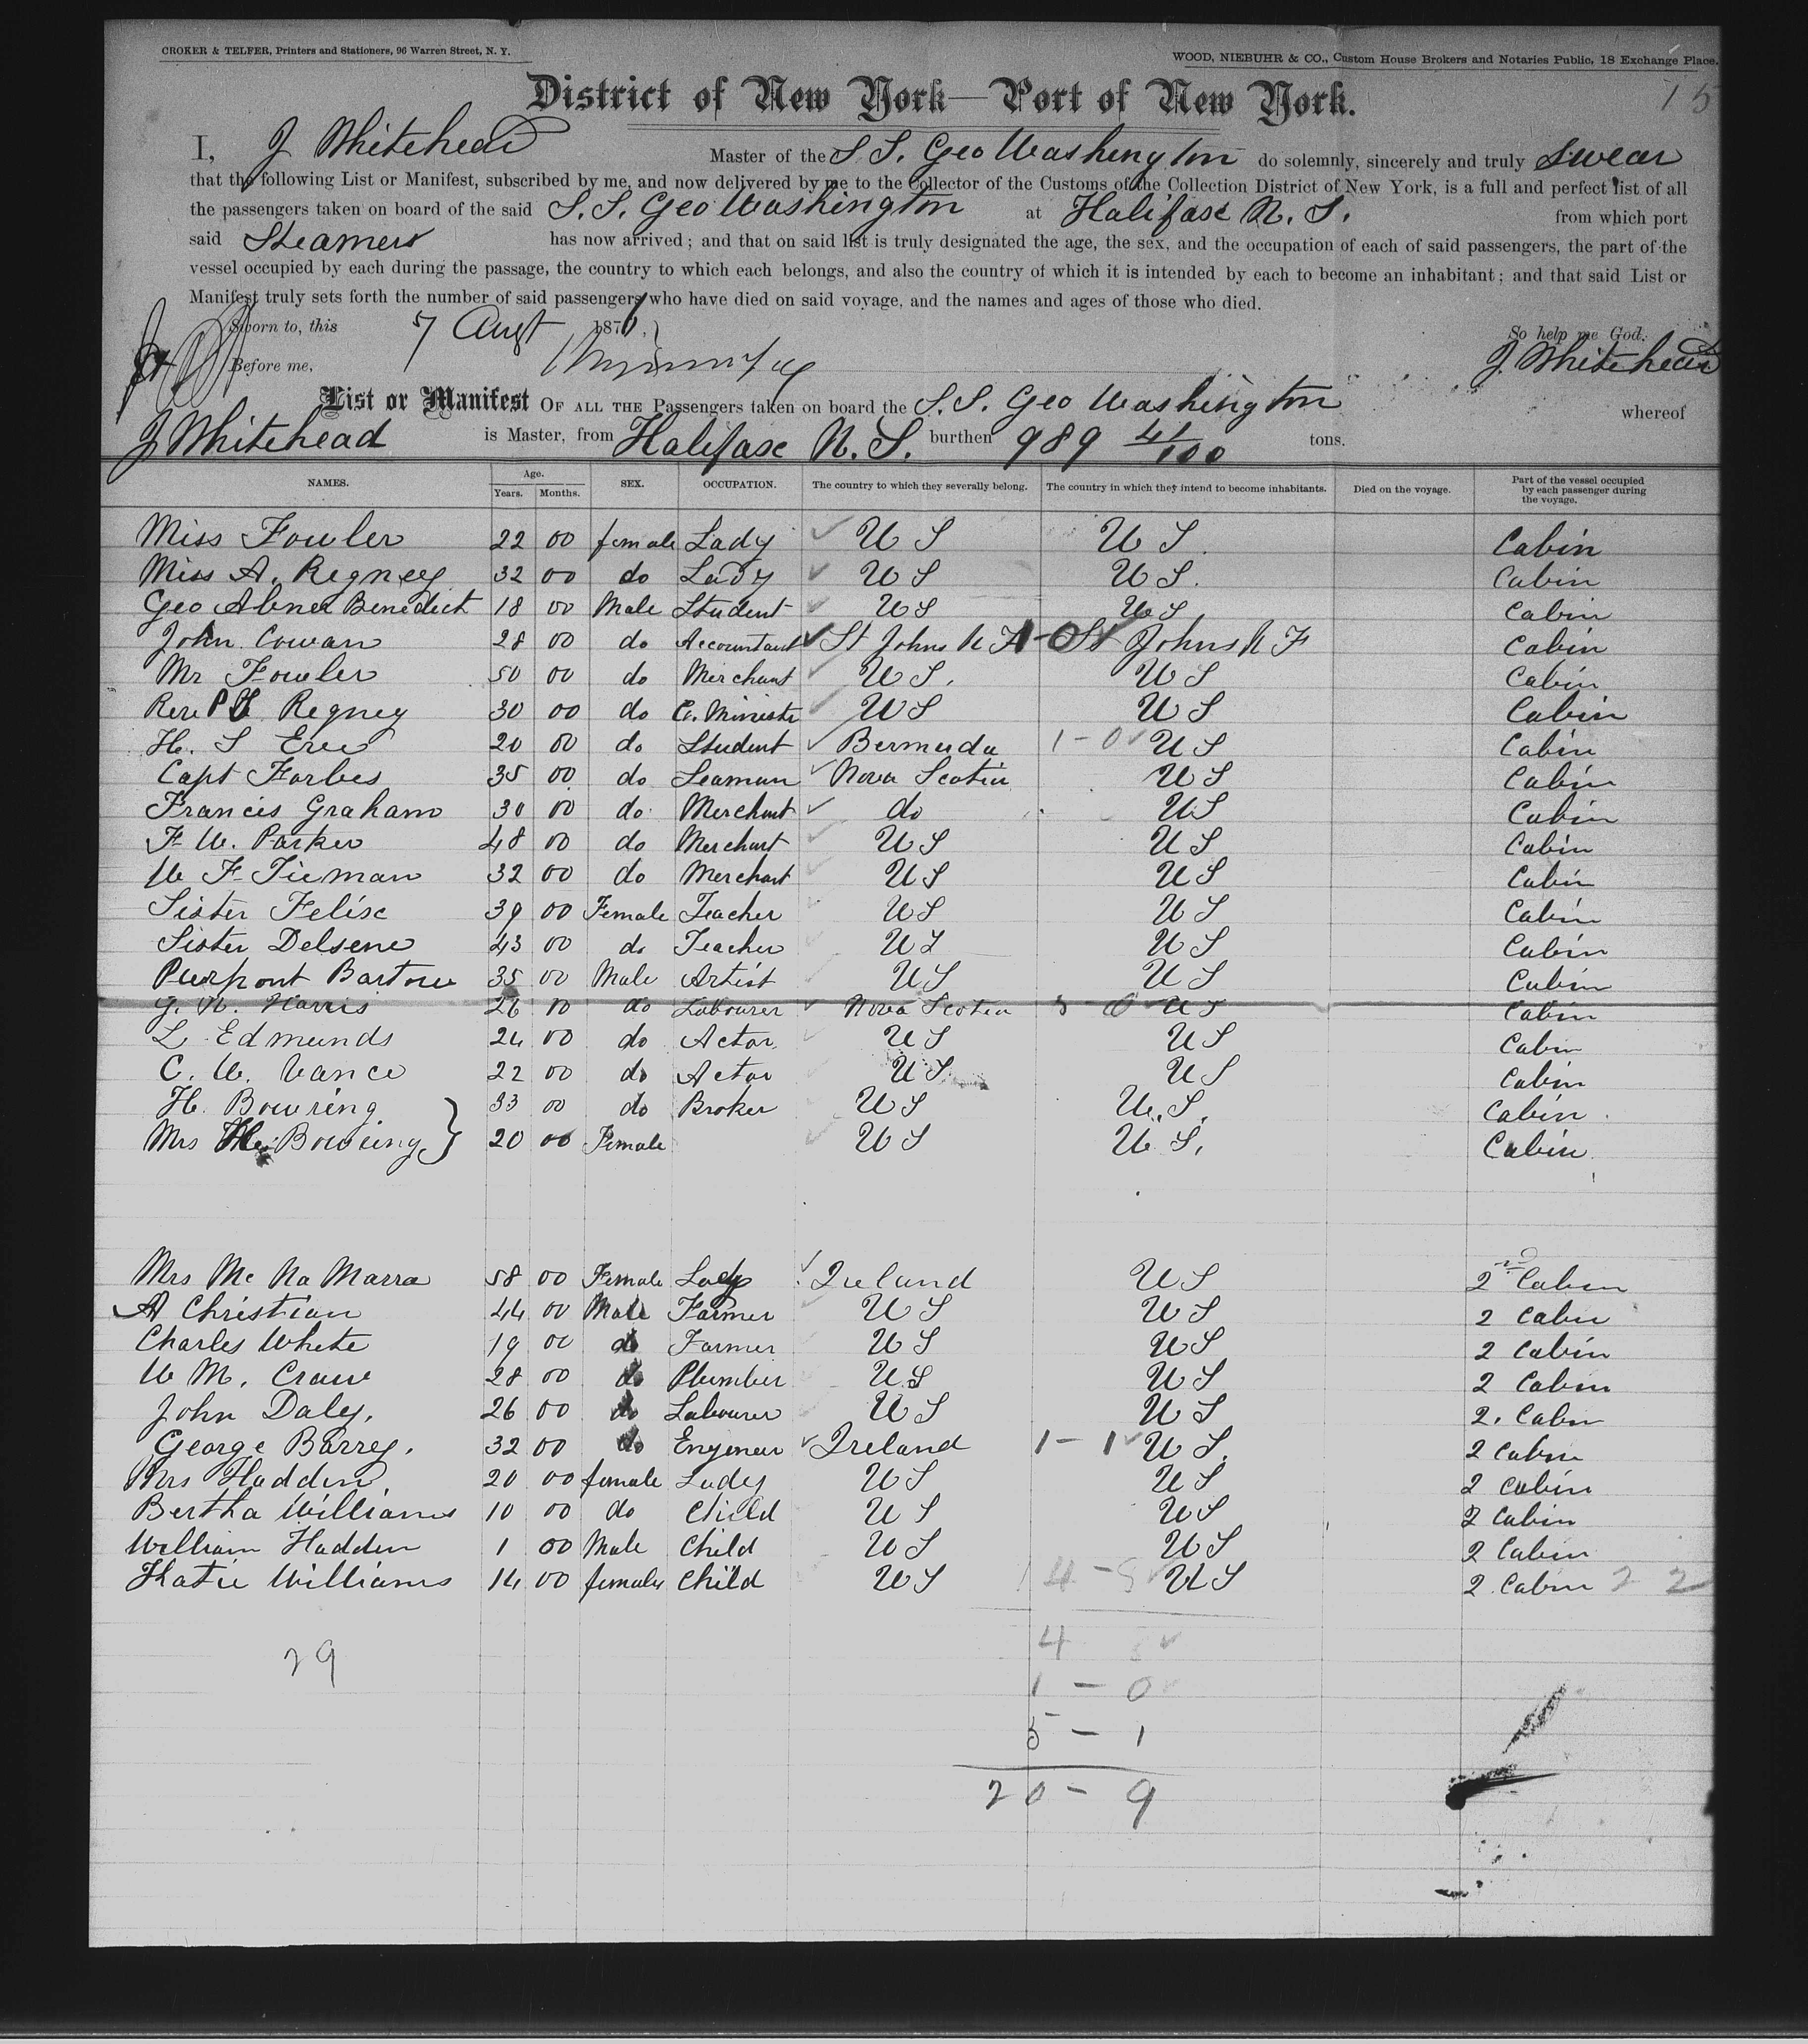 CROKER & TELFER, Printers and Stationers, 96 Warren Street, N. Y.
WOOD, NIEBUHR & CO., Custom House Brokers and Notaries Public, 18 Exchange Place.
District of New York—Port of New York.
15
I, J Whitehead Master of the S S. Geo Washington do solemnly, sincerely and truly swear
that the following List or Manifest, subscribed by me, and now delivered by me to the Collector of the Customs of the Collection District of New York, is a full and perfect list of all
the passengers taken on board of the said S. S. Geo Washington at Halifax N. S. from which port
said Steamer has now arrived; and that on said list is truly designated the age, the sex, and the occupation of each of said passengers, the part of the
vessel occupied by each during the passage, the country to which each belongs, and also the country of which it is intended by each to become an inhabitant; and that said List or
Manifest truly sets forth the number of said passengers who have died on said voyage, and the names and ages of those who died.
Sworn to, this 5 Augt 187 So help me God.
Before me, J. Whitehead
List or Manifest OF ALL THE Passengers taken on board the S. S. Geo Washington whereof
J Whitehead is Master, from Halifax N. S. burthen 989 41/100 tons.
NAMES. Age. Years. Months. SEX. OCCUPATION. The country to which they severally belong. The country in which they intend to become inhabitants. Died on the voyage. Part of the vessel occupied by each passenger during the voyage.
Miss Fowler 22 00 female Lady U S U S. Cabin
Miss A. Regney 32 00 do Lady U S U S. Cabin
Geo Abner Benedict 18 00 Male Student U S U S. Cabin
John Cowan 28 00 do Accountant St Johns N F 1-0 St Johns N F Cabin
Mr Fowler 50 00 do Merchant U S. U S Cabin
Rev P Regney 30 00 do U S U S Cabin
H. S Eve 20 00 do Student Bermuda 1-0 U S Cabin
Capt Forbes 35 00 do Seaman Nova Scotia U S Cabin
Francis Graham 30 00 do Merchant do U S Cabin
F W. Parker 48 00 do Merchant U S U S Cabin
W F Tieman 32 00 do Merchant U S U S Cabin
Sister Felise 39 00 Female Teacher U S U S Cabin
Sister Delsene 43 00 do Teacher U S U S Cabin
Pierpont Bartow 35 00 Male Artist U S U S Cabin
G. N. Harris 26 00 do Labourer Nova Scotia 3-0 U S Cabin
L Edmunds 24 00 do Actor U S U S Cabin
C. W. Vance 22 00 do Actor U S U S Cabin
H. Bowring 33 00 do Broker U S U. S. Cabin
Mrs H. Bowring 20 00 Female U S U. S. Cabin
Mrs Mc Na Marra 58 00 Female Lady Ireland U S 2 Cabin
A Christian 44 00 Male Farmer U S U S 2 Cabin
Charles White 19 00 do Farmer U S U S 2 Cabin
W M. Craw 28 00 do Plumber U S U S 2 Cabin
John Daly. 26 00 do Labourer U S U S 2. Cabin
George Barrey. 32 00 do Engineer Ireland 1-1 U S. 2 Cabin
Mrs Hadden 20 00 female Lady U S U S 2 Cabin
Bertha Williams 10 00 do Child U S U S 2 Cabin
William Hadden 1 00 Male Child U S U S 2 Cabin
Katie Williams 14 00 female Child U S 4- U S 2. Cabin 2 2
29
4
1 - 0
5 - 1
20 - 9